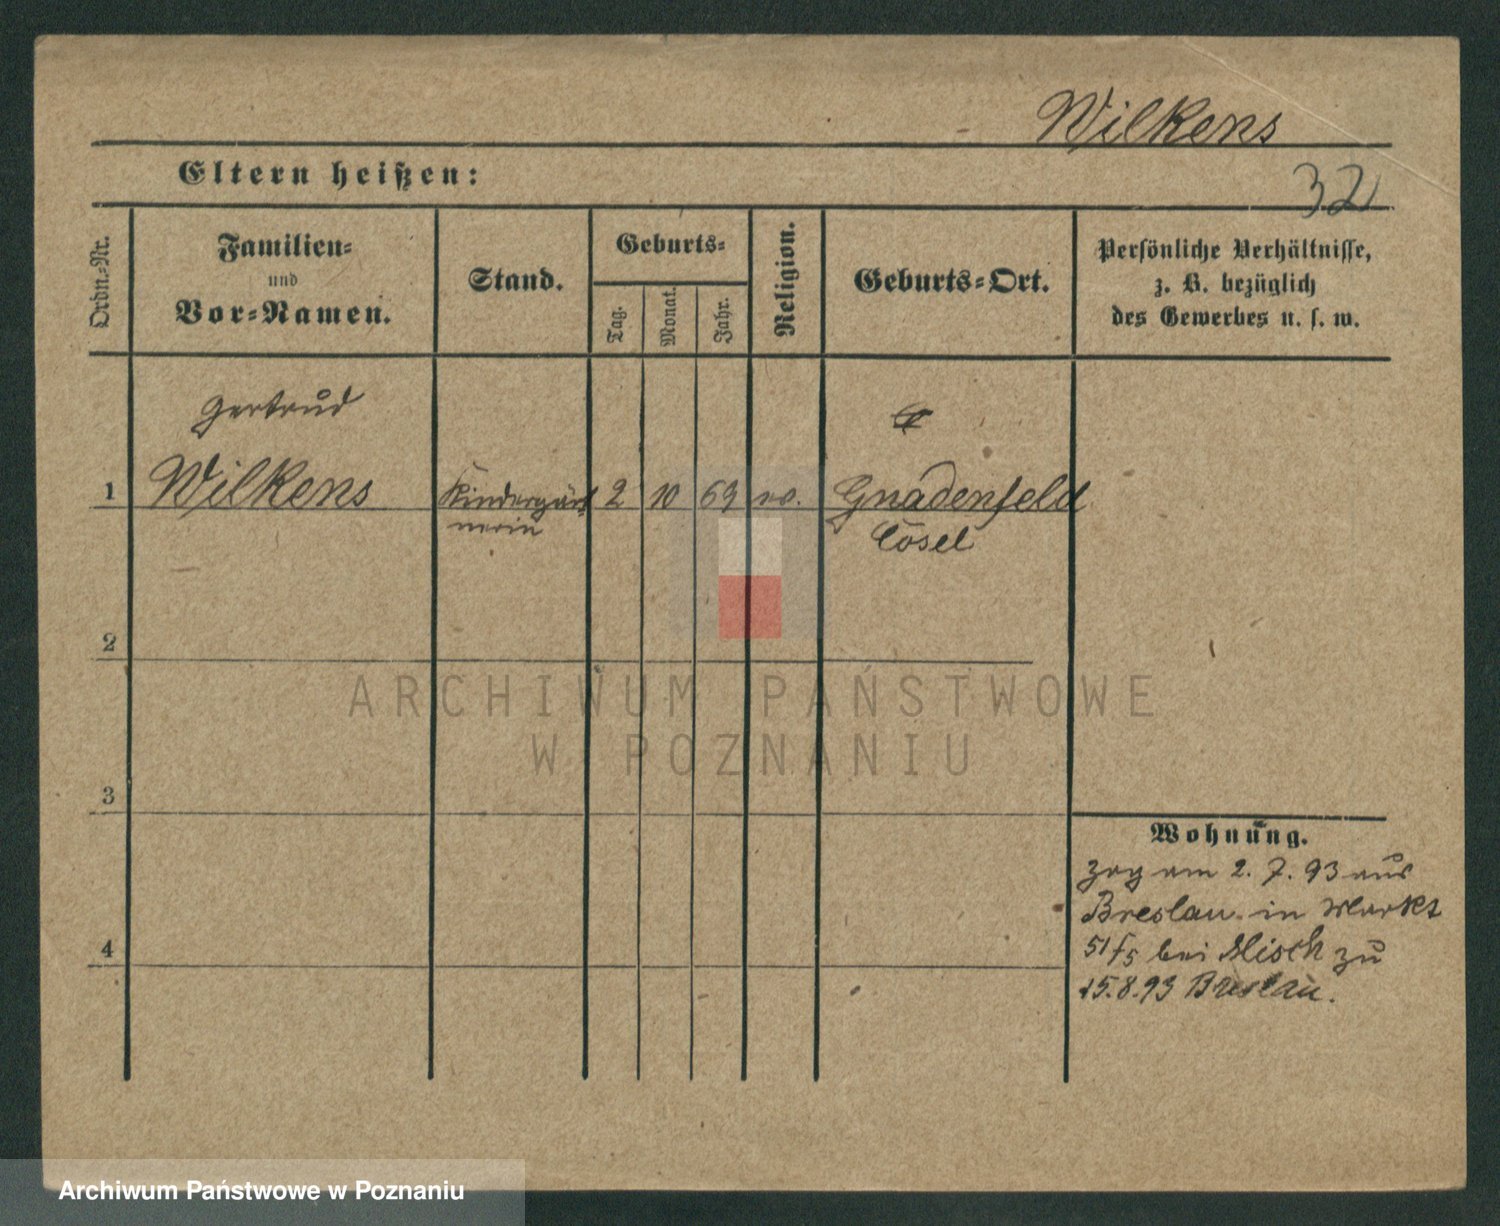 Wilkens
Eltern heißen:
32
Ordn.-Nr.
Familien-
und
Vor-Namen.
Stand.
Geburts-
Tag.
Monat.
Jahr.
Religion.
Geburts-Ort.
Persönliche Verhältnisse,
z. B. bezüglich
des Gewerbes u. s. w.
Gertrud
1 Wilkens Kindergärt- 2 10 69 ev. Gnadenfeld
nerin Cosel
2
3
4
Wohnung.
Zog am 2. 7. 93 aus
Breslau in Markt
51/5 bei Misch zu
15.8.93 Breslau.
ARCHIWUM PAŃSTWOWE
W POZNANIU
Archiwum Państwowe w Poznaniu